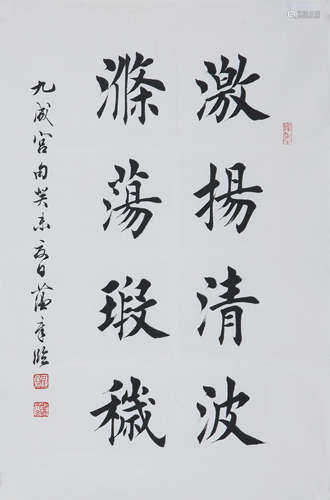 激揚清波
滌蕩瑕穢
九成宮句癸未夏日蔭章臨